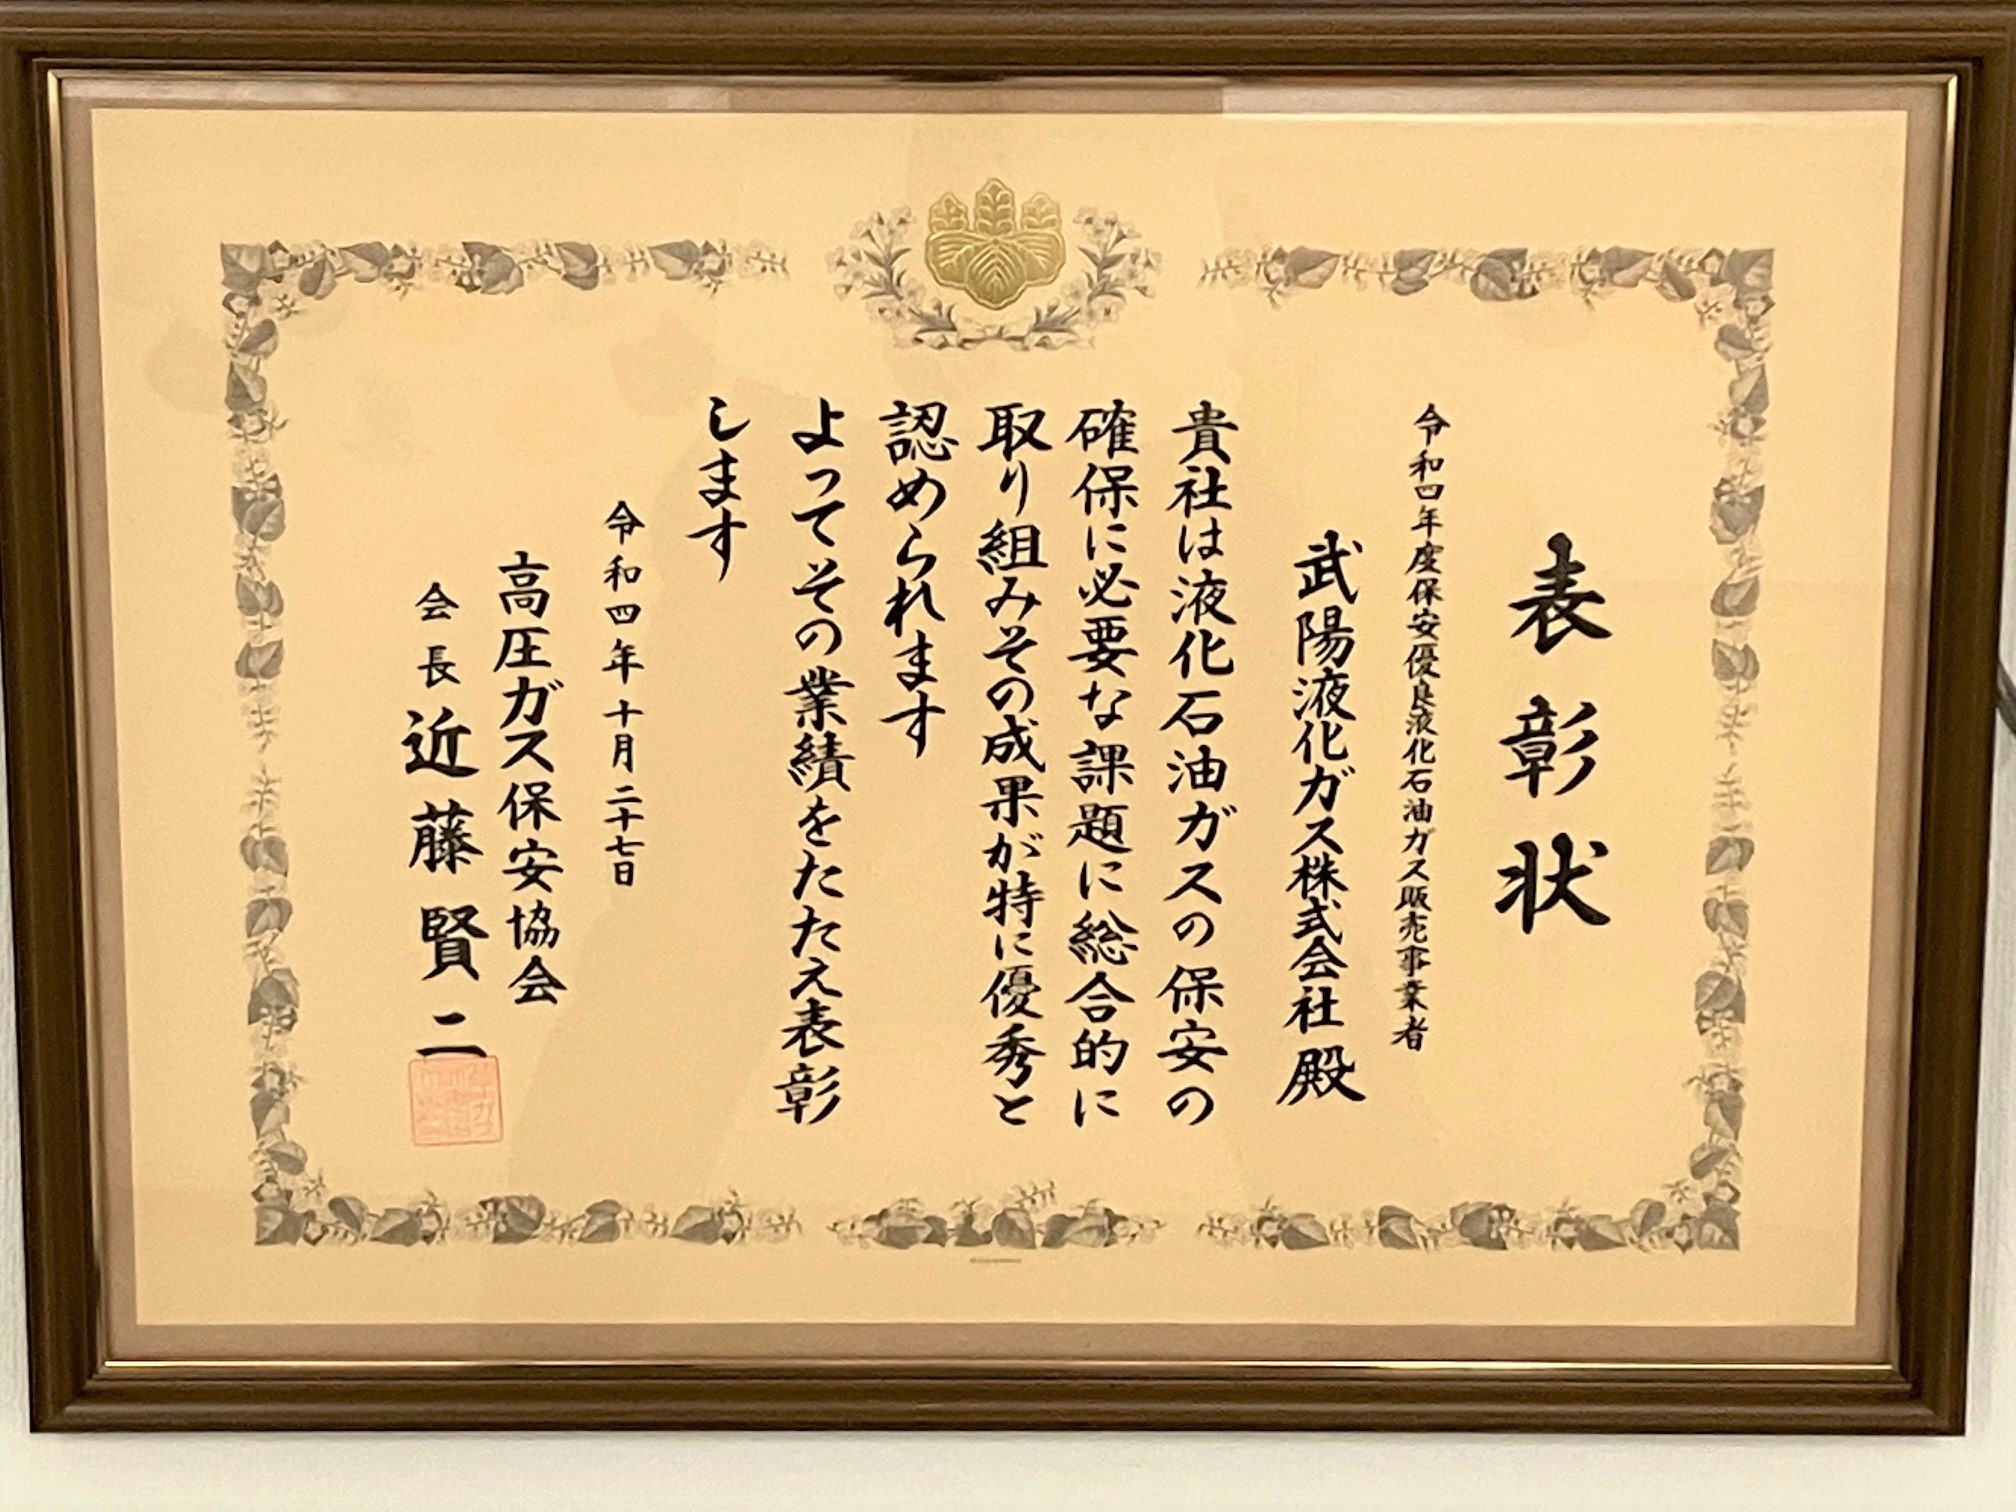 表彰状
令和四年度保安優良液化石油ガス販売事業者
武陽液化ガス株式会社殿
貴社は液化石油ガスの保安の
確保に必要な課題に総合的に
取り組みその成果が特に優秀と
認められます
よってその業績をたたえ表彰
します
令和四年十月二十七日
高圧ガス保安協会
会長近藤賢二